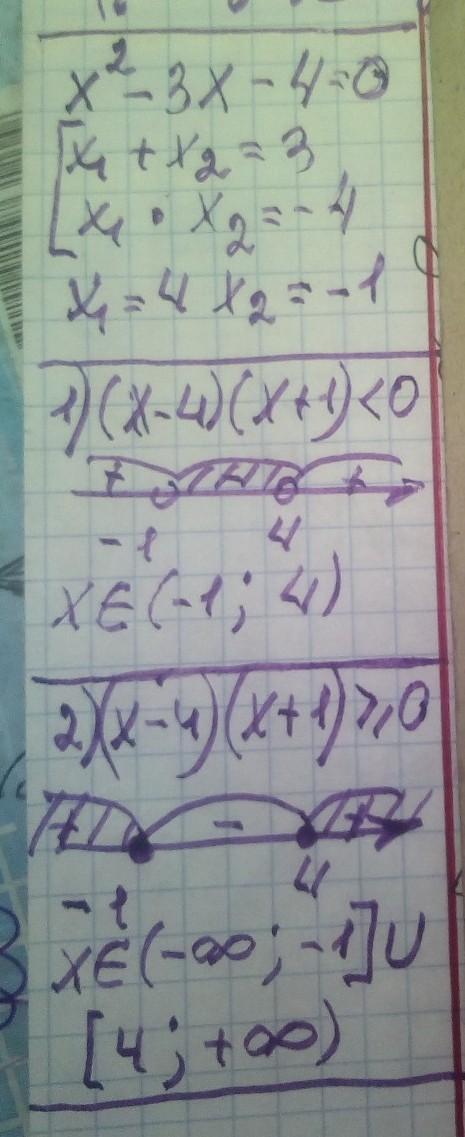 x² - 3x - 4 = 0
x₁ + x₂ = 3
x₁ · x₂ = -4
x₁ = 4 x₂ = -1
1) (x-4)(x+1) < 0
+ - +
-1 4
x∈(-1; 4)
2) (x-4)(x+1) ⩾ 0
+ - +
-1 4
x∈(-∞; -1]∪
[4; +∞)